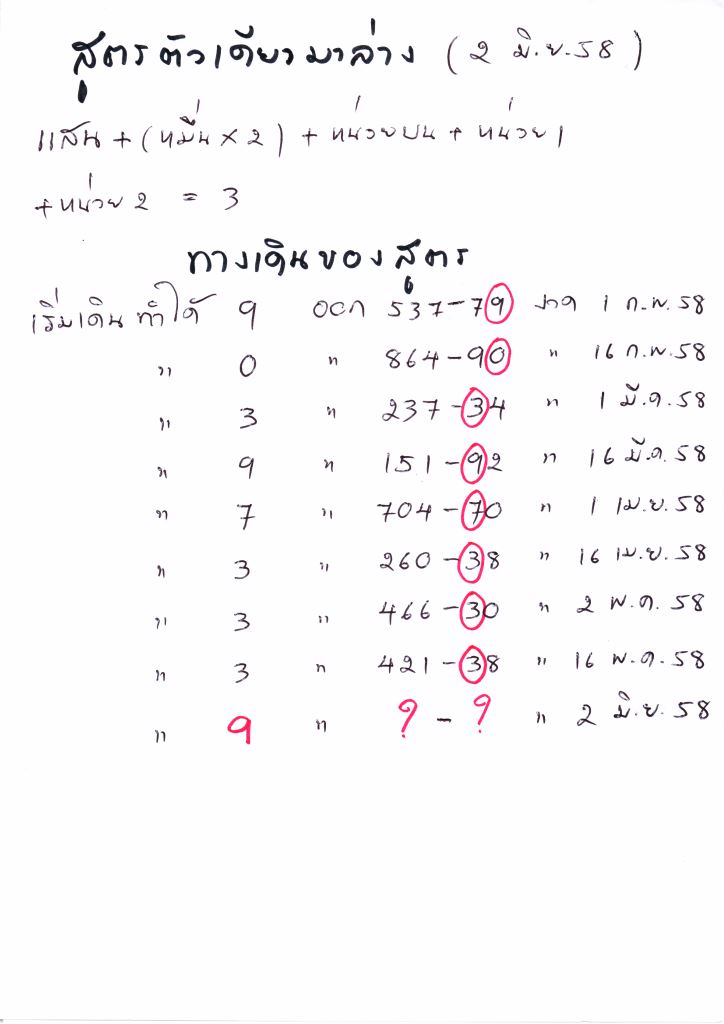 สูตรตัวเดียวมาล่าง (2 มิ.ย.58)
แสน + (หมื่น × 2) + หน่วยบน + หน่วย 1
+ หน่วย 2 = 3
ทางเดินของสูตร
เริ่มเดิน ทำได้ 9 ออก 537-79 งวด 1 ก.พ.58
" 0 " 864-90 " 16 ก.พ.58
" 3 " 237-34 " 1 มี.ค.58
" 9 " 151-92 " 16 มี.ค.58
" 7 " 704-70 " 1 เม.ย.58
" 3 " 260-38 " 16 เม.ย.58
" 3 " 466-30 " 2 พ.ค.58
" 3 " 421-38 " 16 พ.ค.58
" 9 " ?-? " 2 มิ.ย.58